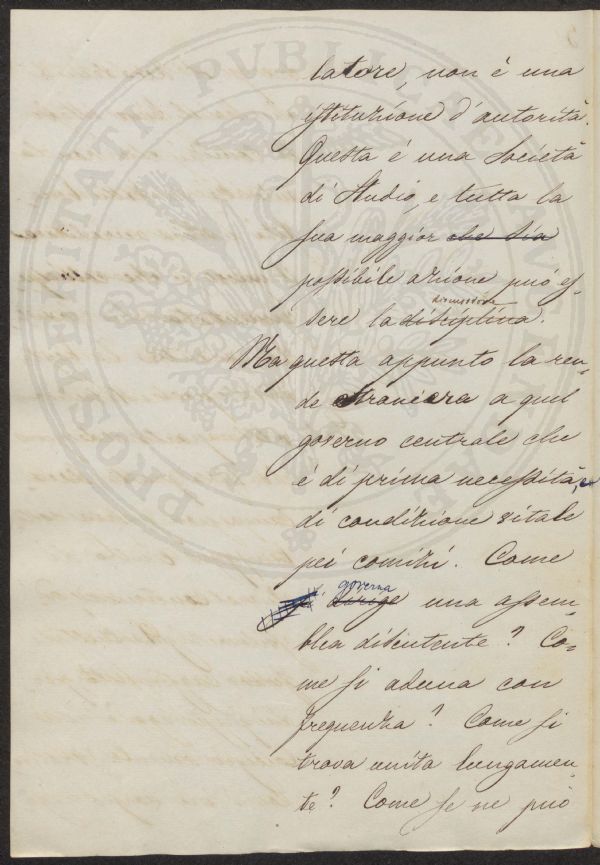 latore, non è una
istituzione d'autorità.
Questa è una società
di studio, e tutta la
sua maggior che sia
possibile azione può es-
discussione
sere la disciplina.
Ma questa appunto la ren-
de straniera a quel
governo centrale che
è di prima necessità,
di condizione vitale
pei comizi. Come
governa
si dirige una assem-
blea discutente? Co-
me si aduna con
frequenza? Come si
trova unita lungamen-
te? Come se ne può
PROSPERITATI PVBLICAE